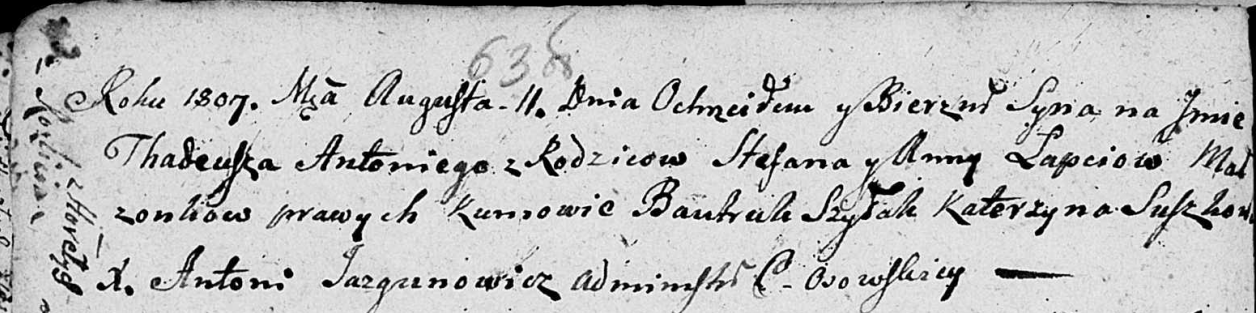 638
Roku 1807. Mca Augusta 11. Dnia Ochrzciłem y Bierzmł Syna na Jmie
Thadeusza Antoniego z Rodzicow Stefana y Anny Łapciow Mał
zonkow prawych Kumowie Bautruk Szyłak Katerzyna Suszkow
X. Antoni Jazgunowicz Adminstr C. Osowskiey